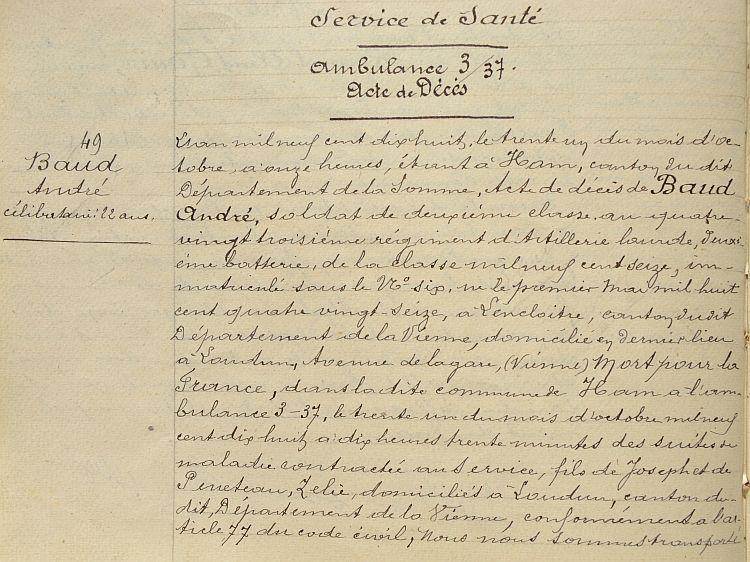 Service de Santé
Ambulance 3/37.
Acte de Décès
49
Baud
André
célibataire: 22 ans.
L'an mil neuf cent dix huit, le trente un du mois d'oc-
tobre, à onze heures, étant à Ham, canton du dit
Département de la Somme, Acte de décès de Baud
André, soldat de deuxième classe au quatre-
vingt troisième régiment d'Artillerie lourde, deuxi-
ème batterie, de la classe mil neuf cent seize, im-
matriculé sous le N° six, né le premier Mai mil huit
cent quatre vingt-seize, à Lencloitre, canton du dit
Département de la Vienne, domicilié en dernier lieu
à Loudun, Avenue de la gare, (Vienne) Mort pour la
France, dans la dite commune de Ham à l'am-
bulance 3-37, le trente un du mois d'octobre mil neuf
cent dix huit à dix heures trente minutes des suites de
maladie contractée au service, fils de Joseph et de
Peneteau, Zelie, domiciliés à Loudun, canton du-
dit, Département de la Vienne, conformément à l'ar-
ticle 77 du code civil, Nous nous sommes transporté